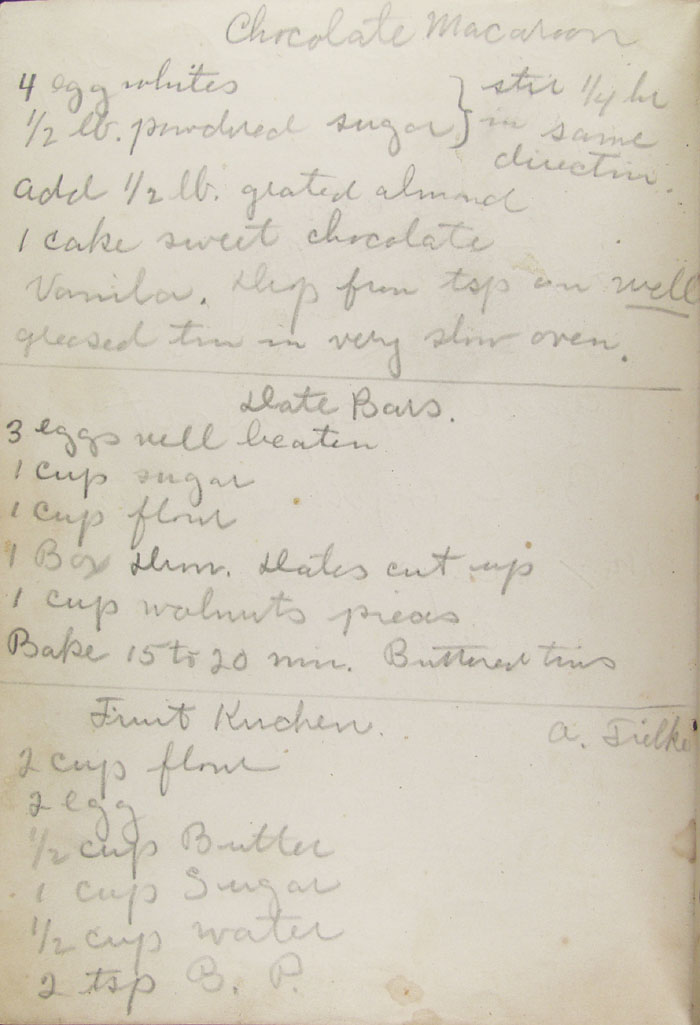 Chocolate Macaroon
4 egg whites } stir 1/4 hr
1/2 lb. powdered sugar } in same
direction.
add 1/2 lb. grated almond
1 cake sweet chocolate
Vanila. Drop from tsp on well
greased tin in very slow oven.
Date Bars.
3 eggs well beaten
1 cup sugar
1 cup flour
1 Box Drom. Dates cut up
1 cup walnuts pieces
Bake 15 to 20 min. Buttered tins
Fruit Kuchen. A. Tielke
2 cup flour
2 egg
1/2 cup Butter
1 cup Sugar
1/2 cup water
2 tsp B. P.